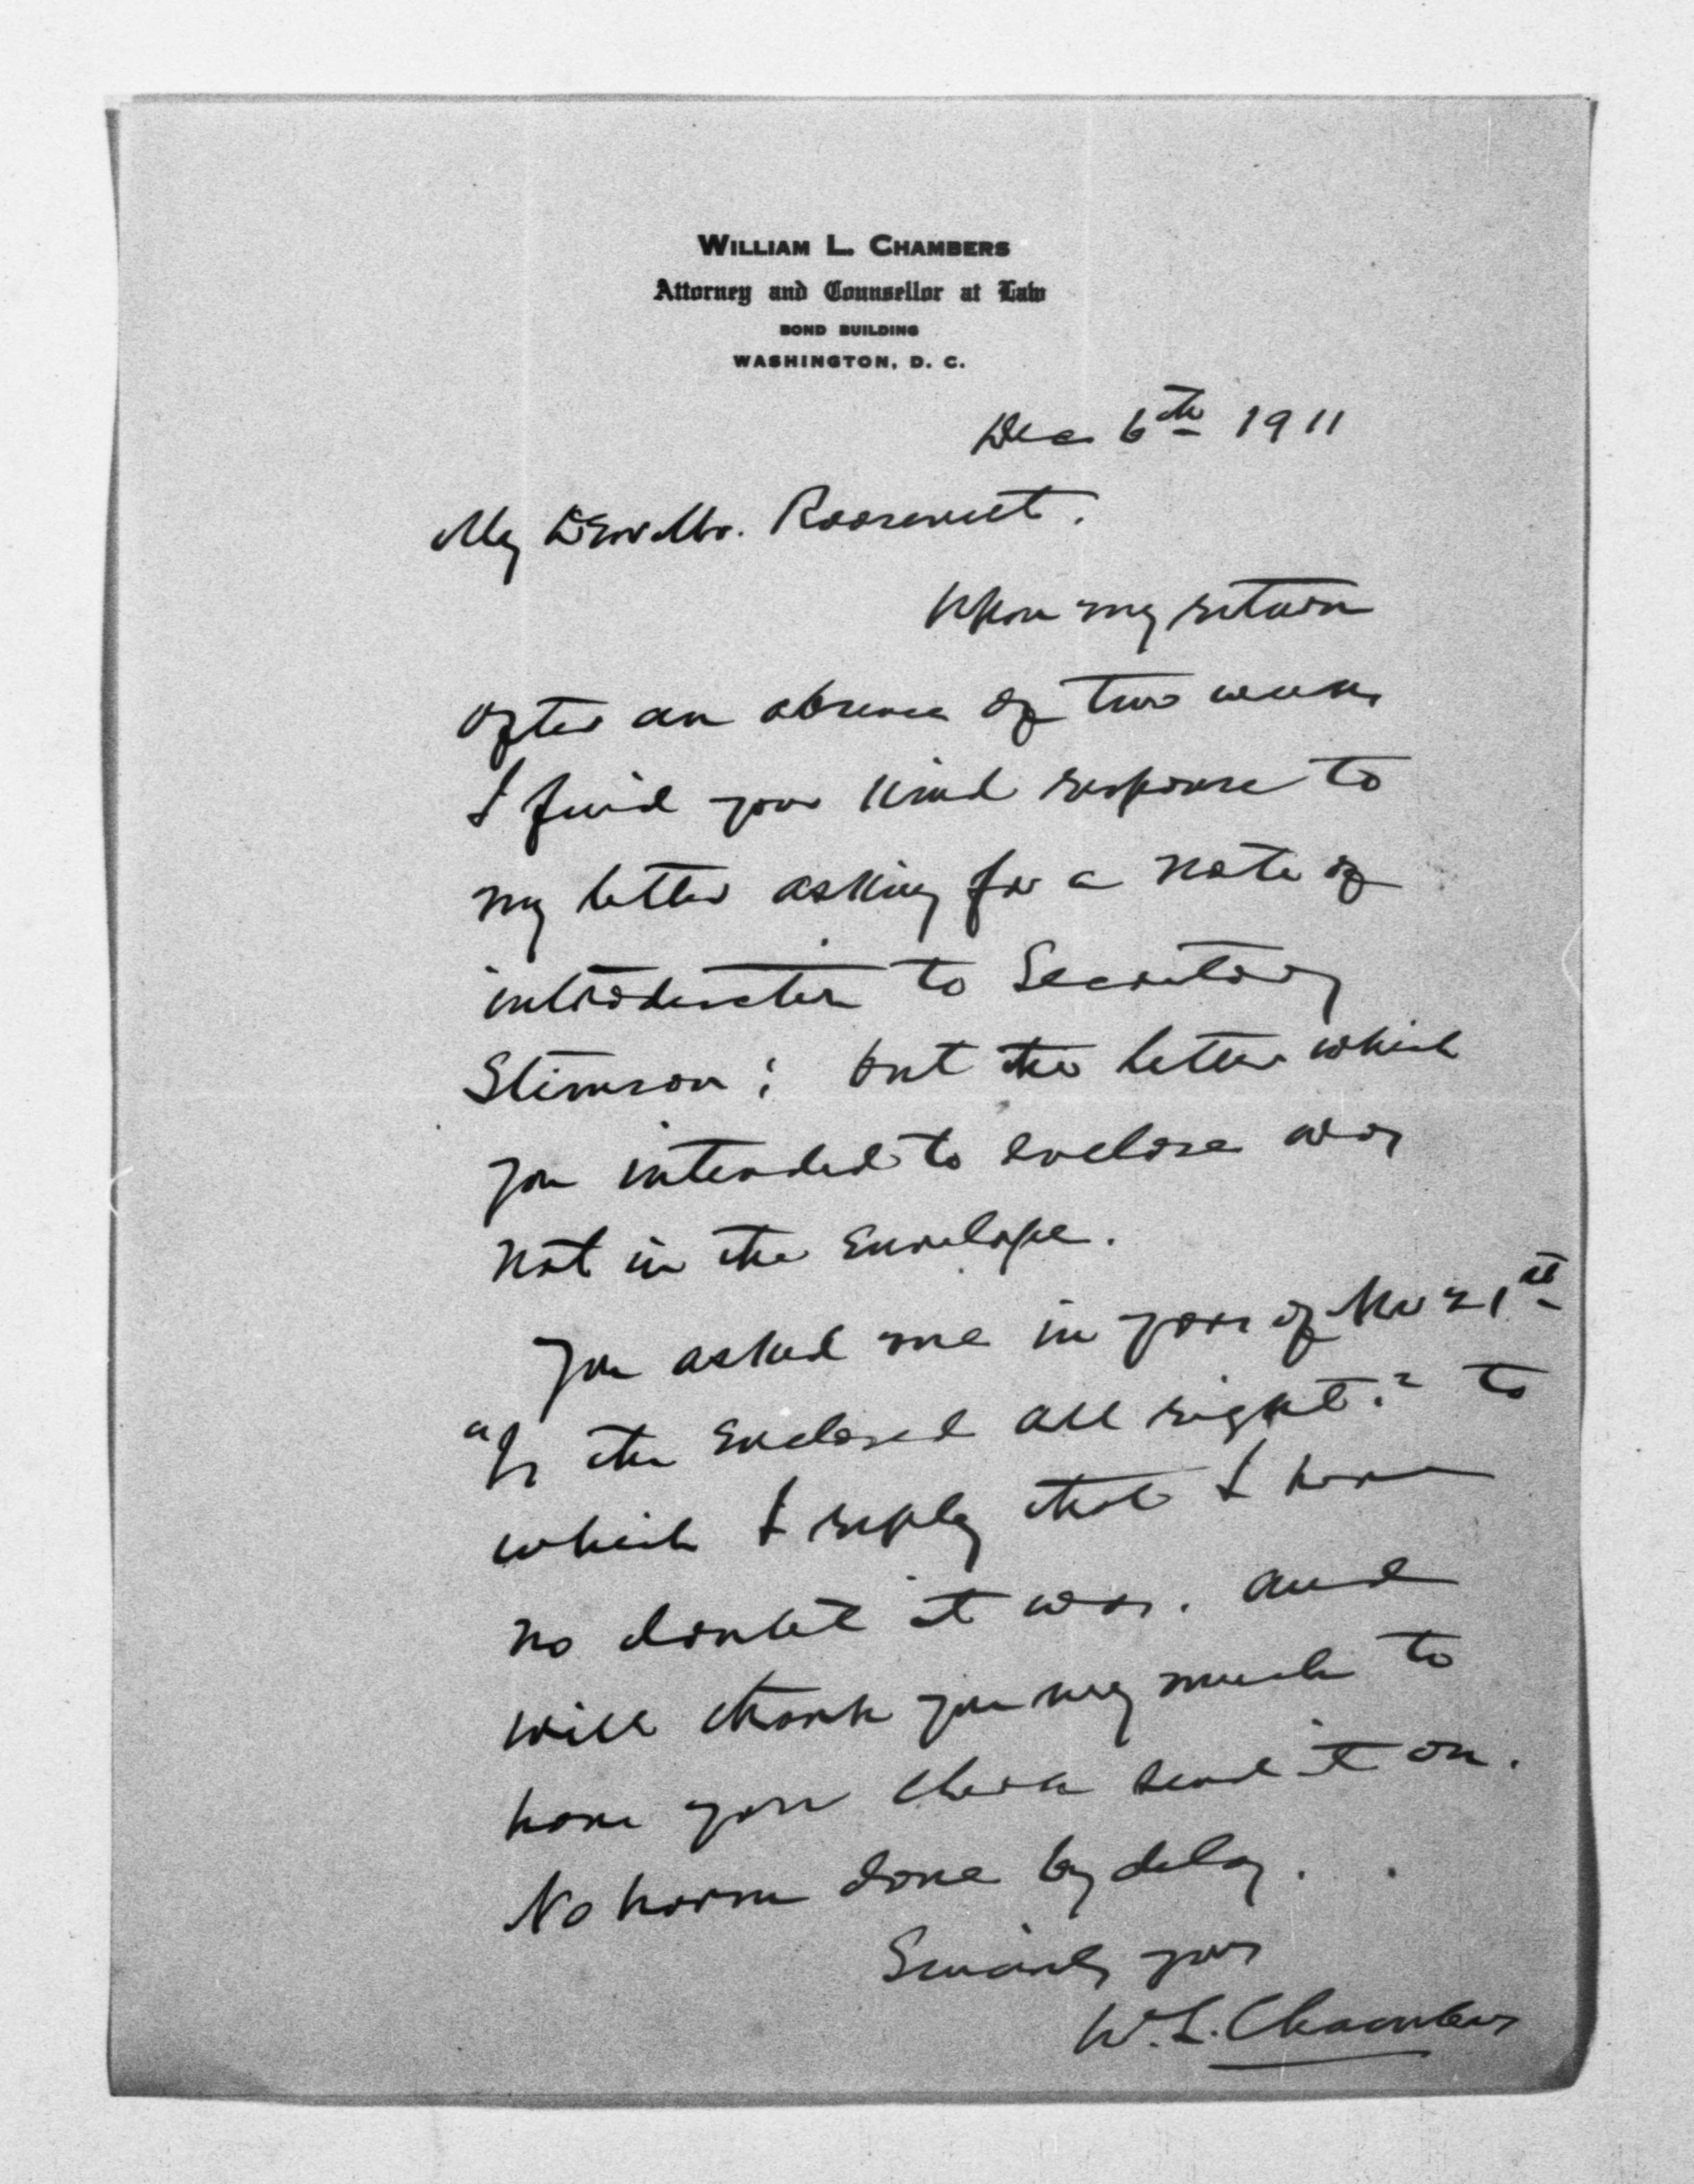 WILLIAM L. CHAMBERS
Attorney and Counsellor at Law
BOND BUILDING
WASHINGTON, D. C.
Dec 6th 1911
My Dear Mr. Roosevelt.
Upon my return
after an absence of two weeks
I find your kind response to
my letter asking for a note of
introduction to Secretary
Stimson; but the letter which
you intended to enclose was
not in the envelope.
You asked me in yours of Nov 21st
"Is the enclosed all right?" to
which I reply that I have
no doubt it was. and
will thank you very much to
have your clerk send it on.
No harm done by delay.
Sincerely yours
W. L. Chambers